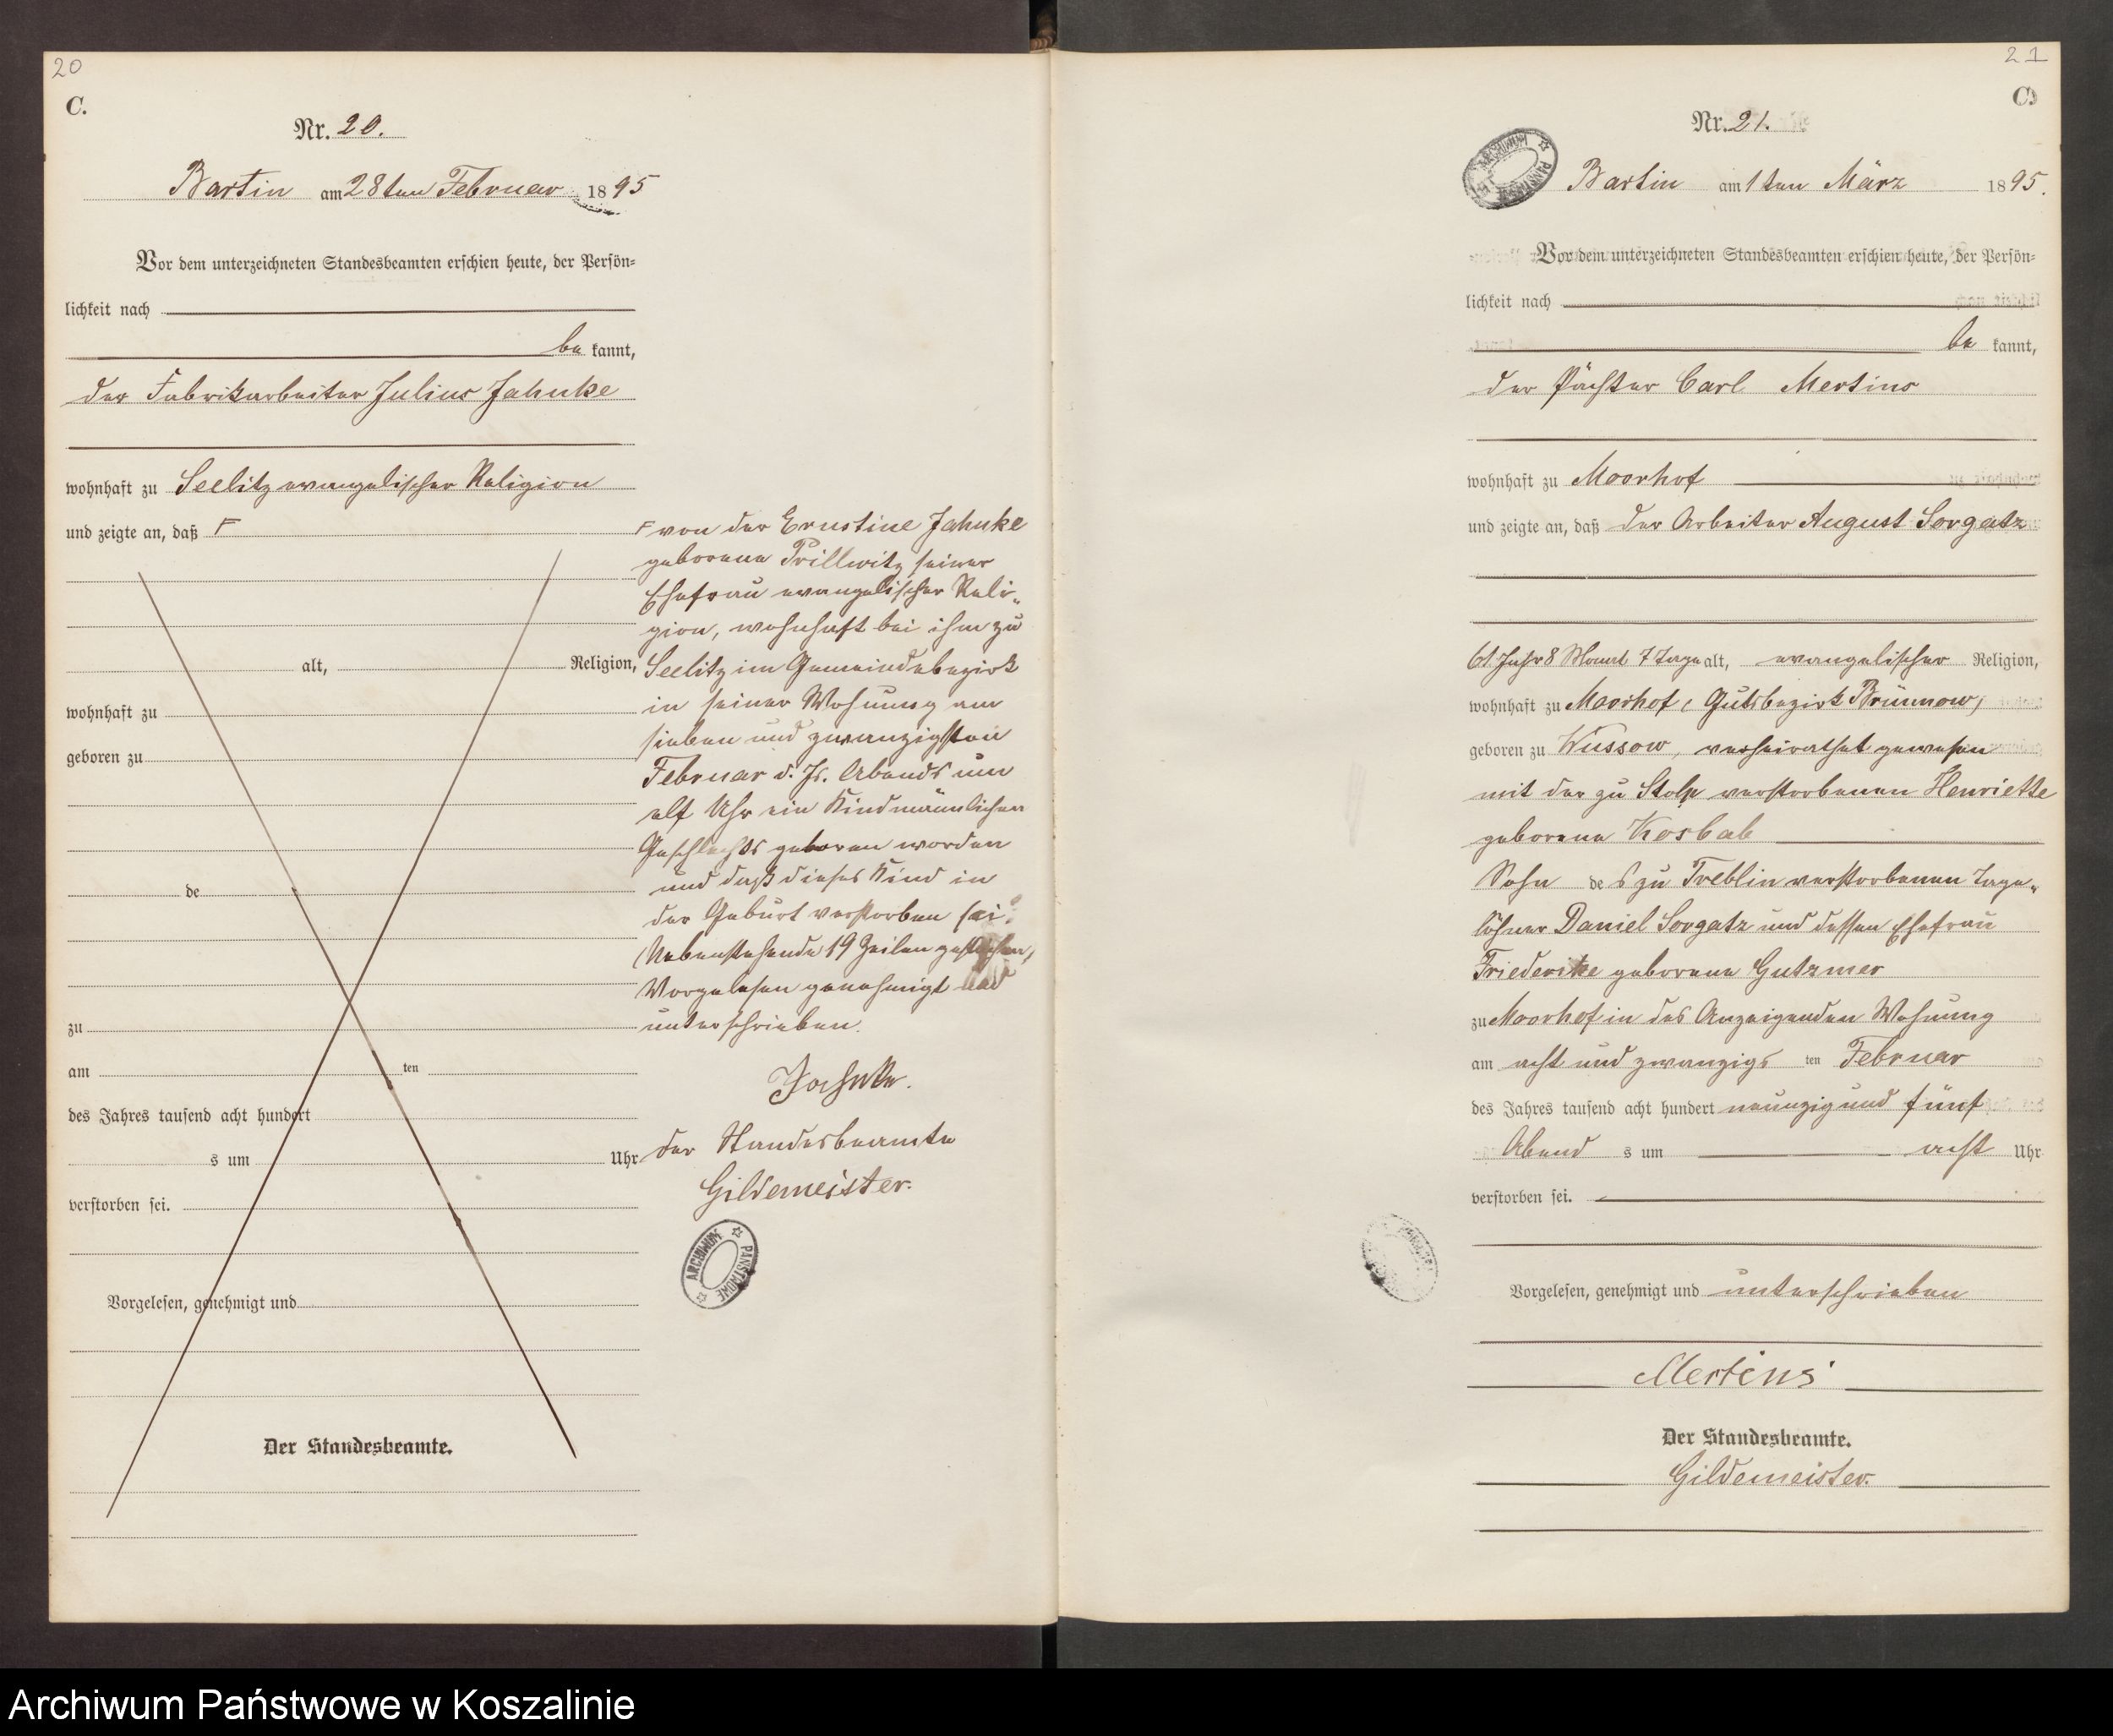 20
C.
Nr. 20.
Bartin am 28ten Februar 1895
Vor dem unterzeichneten Standesbeamten erschien heute, der Persön-
lichkeit nach
be kannt,
der Fabrikarbeiter Julius Jahnke
wohnhaft zu Seelitz evangelischer Religion
und zeigte an, daß F
alt, Religion,
wohnhaft zu
geboren zu
de
zu
am ten
des Jahres tausend acht hundert
s um Uhr
verstorben sei.
Vorgelesen, genehmigt und
Der Standesbeamte.
F von der Ernstine Jahnke
geborene Prillwitz seiner
Ehefrau evangelischer Reli-
gion, wohnhaft bei ihm zu
Seelitz im Gemeindebezirk
in seiner Wohnung am
sieben und zwanzigsten
Februar d. Js. Abends um
elf Uhr ein Kind männlichen
Geschlechts geboren worden
und daß dieses Kind in
der Geburt verstorben sei.
(Nebenstehende 19 Zeilen gestrichen)
Vorgelesen genehmigt und
unterschrieben.
Jahnke.
der Standesbeamte
Gildemeister.
ARCHIWUM PAŃSTWOWE
21
C.
Nr. 21.
ARCHIWUM PAŃSTWOWE
Bartin am 1ten März 1895.
Vor dem unterzeichneten Standesbeamten erschien heute, der Persön-
lichkeit nach
be kannt,
der Pächter Carl Mertins
wohnhaft zu Moorhof
und zeigte an, daß der Arbeiter August Sorgatz
61 Jahr 8 Monat 7 Tage alt, evangelischer Religion,
wohnhaft zu Moorhof, Gutsbezirk Brünnow,
geboren zu Kussow, verheirathet gewesen
mit der zu Stolp verstorbenen Henriette
geborene Kosbab
Sohn de s zu Treblin verstorbenen Tage-
löhner Daniel Sorgatz und dessen Ehefrau
Friederike geborene Gutzmer
zu Moorhof in des Anzeigenden Wohnung
am acht und zwanzigs ten Februar
des Jahres tausend acht hundert neunzig und fünf
Abend s um acht Uhr
verstorben sei.
Vorgelesen, genehmigt und unterschrieben
Mertins
Der Standesbeamte.
Gildemeister.
Archiwum Państwowe w Koszalinie